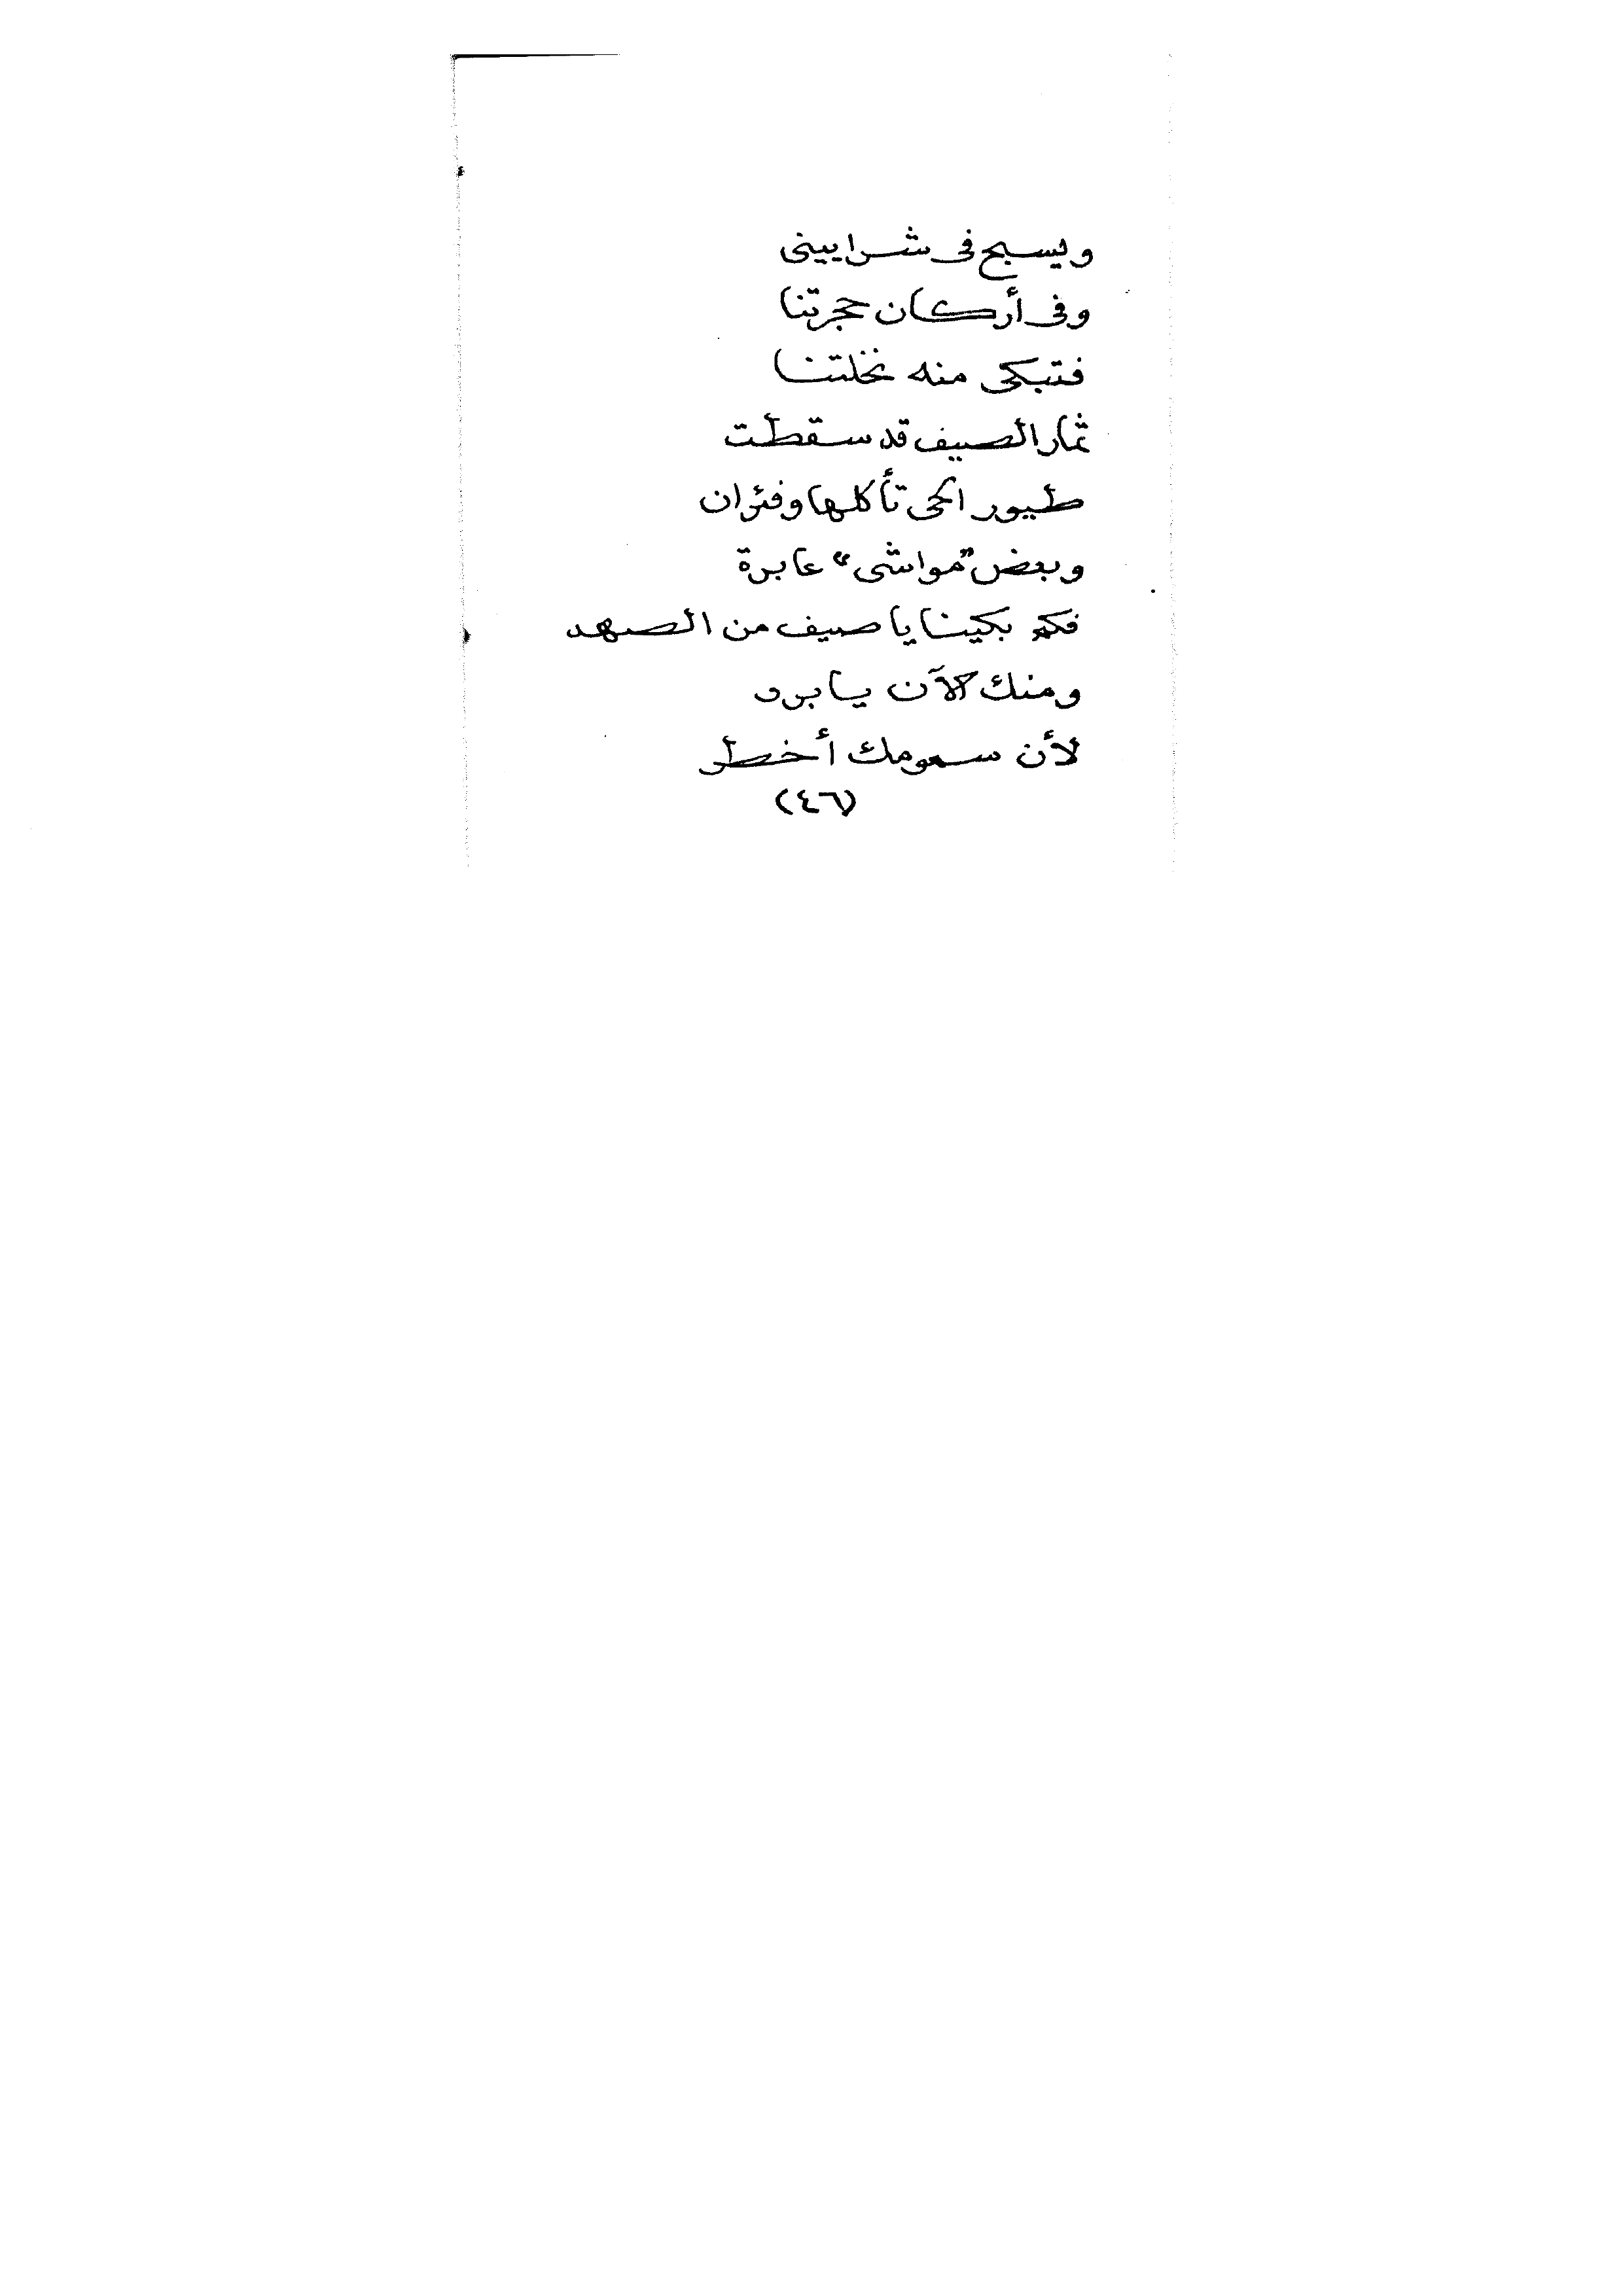 ويسبح فى شرايينى
وفى أركان حجرتنا
فتبكى منه نخلتنا
ثمار الصيف قد سقطت
طيور الحى تأكلها وفئران
وبعض "مواشى" عابرة
فكم بكينا يا صيف من الصهد
ومنك الآن يا برد
لأن سمومك أخطر
(٤٦)